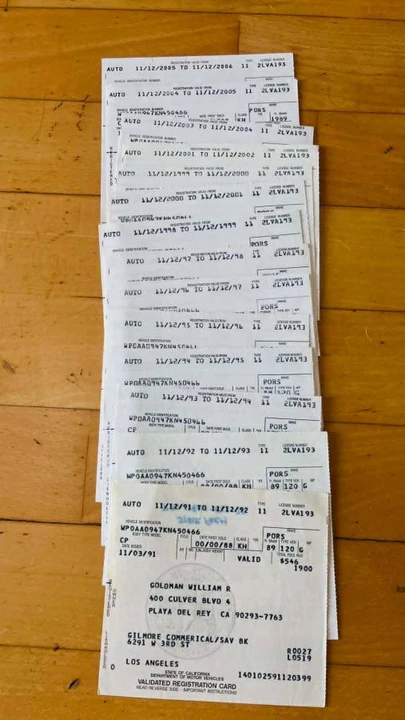 AUTO 11/12/2005 TO 11/12/2006 11 2LVA193
AUTO 11/12/2004 TO 11/12/2005 11 2LVA193
PORS
1989
AUTO 11/12/2003 TO 11/12/2004 11 2LVA193
AUTO 11/12/2001 TO 11/12/2002 11 2LVA193
AUTO 11/12/1999 TO 11/12/2000 11 2LVA193
AUTO 11/12/2000 TO 11/12/2001 11 2LVA193
AUTO 11/12/1998 TO 11/12/1999 11 2LVA193
AUTO 11/12/97 TO 11/12/98 11 2LVA193
AUTO 11/12/96 TO 11/12/97 11 2LVA193
PORS
AUTO 11/12/95 TO 11/12/96 11 2LVA193
AUTO 11/12/94 TO 11/12/95 11 2LVA193
WP0AA0947KN450466 PORS
AUTO 11/12/93 TO 11/12/94 11 2LVA193
WP0AA0947KN450466 PORS
CP
AUTO 11/12/92 TO 11/12/93 11 2LVA193
VEHICLE IDENTIFICATION
WP0AA0947KN450466 PORS
00/00/88 KH 89 120 G
AUTO 11/12/91 TO 11/12/92 11 2LVA193
WP0AA0947KN450466 PORS
CP 00/00/88 KH 89 120 G
11/03/91 VALID $546
1900
GOLDMAN WILLIAM R
400 CULVER BLVD 4
PLAYA DEL REY CA 90293-7763
GILMORE COMMERICAL/SAV BK R0027
6291 W 3RD ST L0519
LOS ANGELES
0 140102591120399
STATE OF CALIFORNIA
DEPARTMENT OF MOTOR VEHICLES
VALIDATED REGISTRATION CARD
READ REVERSE SIDE - IMPORTANT INSTRUCTIONS